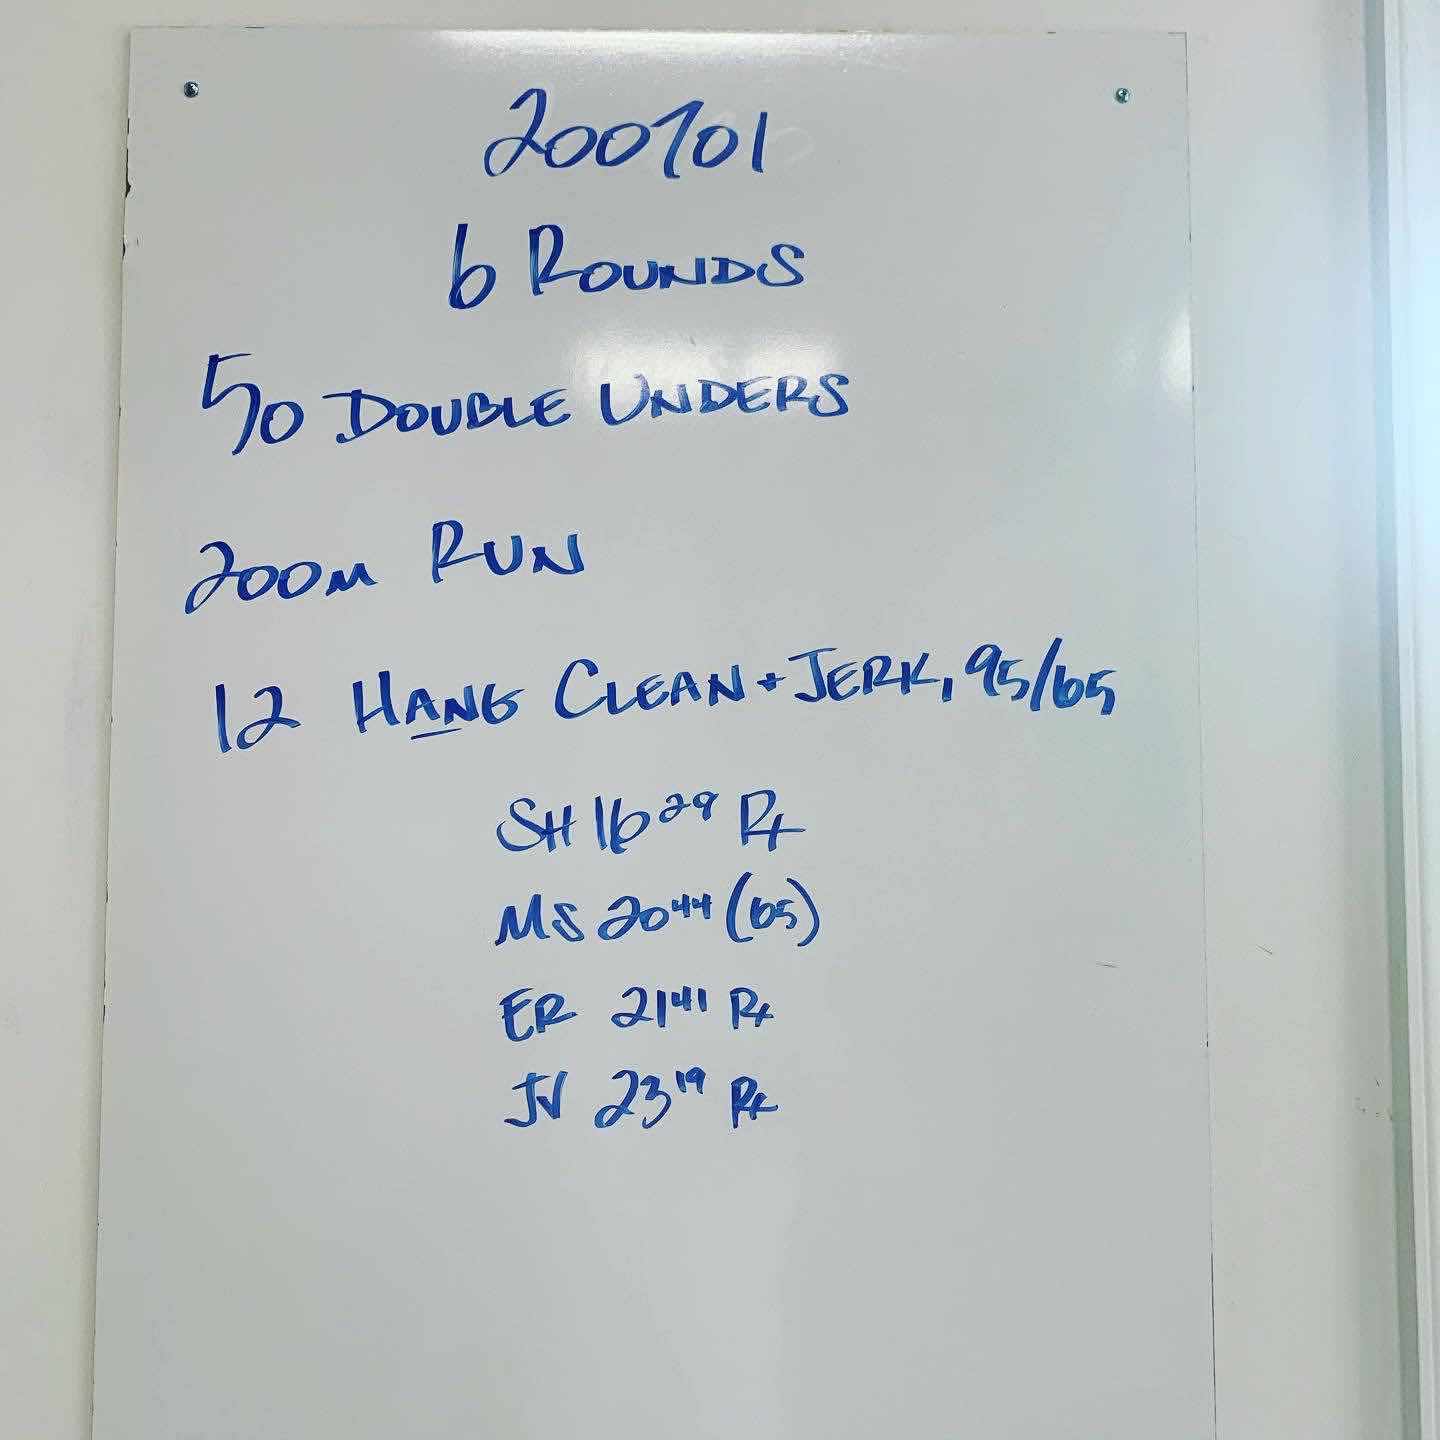 200701
6 ROUNDS
50 DOUBLE UNDERS
200M RUN
12 HANG CLEAN + JERK, 95/65
SH 16 29 Rx
MS 20 44 (65)
ER 21 41 Rx
JV 23 19 Rx